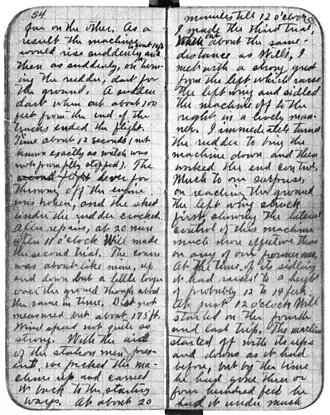 54
far on the other. As a
result the machine
would rise suddenly to about 10 ft
and then as suddenly, on turn-
ing the rudder, dart for
the ground. A sudden
dart when out about 100
feet from the end of the
tracks ended the flight.
Time about 12 seconds (not
known exactly as watch was
not promptly stopped). The
lever for
throwing off the engine
was broken, and the skid
under the rudder cracked.
After repairs, at 20 min
after 11 o'clock Will made
the second trial. The course
was about like mine, up
and down but a little longer
over the ground though about
the same in time. Dist. not
measured but about 175 ft.
Wind speed not quite so
strong. With the aid
of the station men pres-
ent, we picked the ma-
chine up and carried
it back to the starting
ways. At about 20
minutes till 12 o'clock
I made the third trial.
When about the same
distance as Will's, I
met with a strong gust
from the left which raised
the left wing and sidled
the machine off to the
right in a lively man-
ner. I immediately turned
the rudder to bring the
machine down and then
worked the end control.
Much to our surprise
on reaching the ground
the left wing struck
first, showing the lateral
control of this machine
much more effective than
on any of our former ones.
At the time of its sidling
it had raised to a height
of probably 12 to 14 feet.
At just 12 o'clock Will
started on the fourth
and last trip. The machine
started off with its ups
and downs as it had
before, but by the time
he had gone three or
four hundred feet he
had it under much